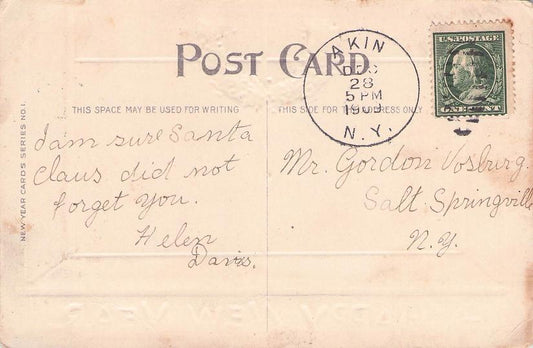 POST CARD
AKIN
DEC
28
5 PM
1909
N.Y.
U.S. POSTAGE
ONE CENT
THIS SPACE MAY BE USED FOR WRITING
THIS SIDE FOR THE ADDRESS ONLY
NEW YEAR CARDS SERIES NO. 1.
I am sure Santa
Claus did not
forget you.
Helen
Davis.
Mr. Gordon Vosburg.
Salt Springville
N.Y.
HAPPY NEW YEAR